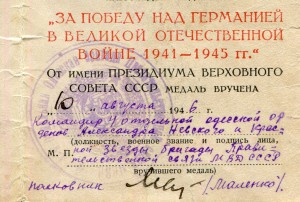 "ЗА ПОБЕДУ НАД ГЕРМАНИЕЙ
В ВЕЛИКОЙ ОТЕЧЕСТВЕННОЙ
ВОЙНЕ 1941—1945 гг."
От имени ПРЕЗИДИУМА ВЕРХОВНОГО
СОВЕТА СССР МЕДАЛЬ ВРУЧЕНА
"10" августа 1946 г.
Командир 9 отдельной одесской ор
денов Александра Невского и Крас
(должность, военное звание и подпись лица,
М. П. ной Звезды бригады Прави-
тельственной связи МВД СССР
вручившего медаль)
полковник /Маленко/